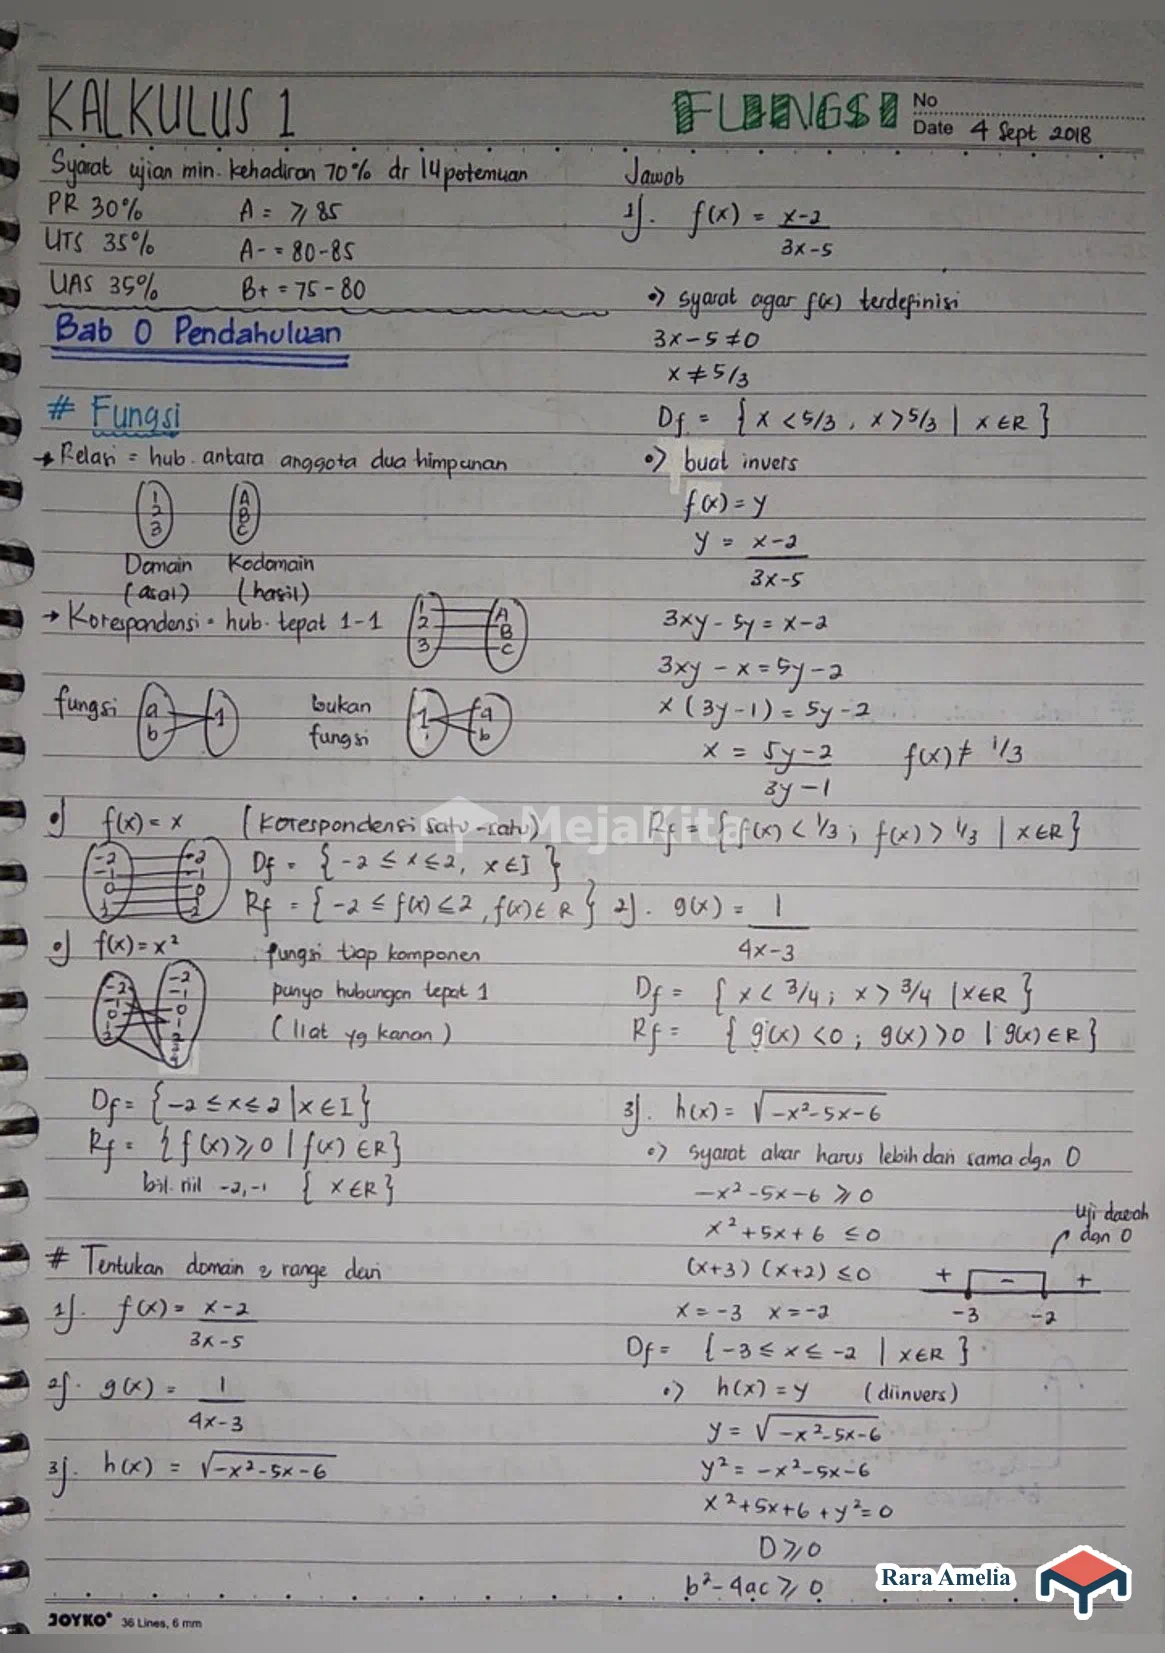 KALKULUS 1
FUNGSI
No
Date 4 Sept 2018
Syarat ujian min. kehadiran 70% dr 14 pertemuan
PR 30% A = ≥ 85
UTS 35% A- = 80-85
UAS 35% B+ = 75-80
Bab 0 Pendahuluan
# Fungsi
→ Relasi = hub. antara anggota dua himpunan
1 A
2 B
3 C
Domain Kodomain
(asal) (hasil)
→ Korespondensi = hub. tepat 1-1
1 A
2 B
3 C
fungsi a b 1
bukan fungsi 1 a b
•) f(x) = x (korespondensi satu-satu)
-2 -2
-1 -1
0 0
1 1
2 2
Df = { -2 ≤ x ≤ 2, x ∈ I }
Rf = { -2 ≤ f(x) ≤ 2, f(x) ∈ R }
•) f(x) = x²
fungsi tiap komponen
punya hubungan tepat 1
(liat yg kanan)
Df = { -2 ≤ x ≤ 2 | x ∈ I }
Rf = { f(x) ≥ 0 | f(x) ∈ R }
bil. riil -2, -1 { x ∈ R }
# Tentukan domain & range dari
1). f(x) = x-2 / 3x-5
2). g(x) = 1 / 4x-3
3). h(x) = √-x²-5x-6
Jawab
1). f(x) = x-2 / 3x-5
•) syarat agar f(x) terdefinisi
3x-5 ≠ 0
x ≠ 5/3
Df = { x < 5/3, x > 5/3 | x ∈ R }
•) buat invers
f(x) = y
y = x-2 / 3x-5
3xy - 5y = x-2
3xy - x = 5y-2
x (3y-1) = 5y-2
x = 5y-2 / 3y-1 f(x) ≠ 1/3
Rf = { f(x) < 1/3 ; f(x) > 1/3 | x ∈ R }
2). g(x) = 1 / 4x-3
Df = { x < 3/4 ; x > 3/4 | x ∈ R }
Rf = { g(x) < 0 ; g(x) > 0 | g(x) ∈ R }
3). h(x) = √-x²-5x-6
•) syarat akar harus lebih dari sama dgn 0
-x²-5x-6 ≥ 0
x²+5x+6 ≤ 0
(x+3) (x+2) ≤ 0
x = -3 x = -2
uji daerah
dgn 0
+ - +
-3 -2
Df = { -3 ≤ x ≤ -2 | x ∈ R }
•) h(x) = y (diinvers)
y = √-x²-5x-6
y² = -x²-5x-6
x²+5x+6+y² = 0
D ≥ 0
b²-4ac ≥ 0
MejaKita
Rara Amelia
JOYKO® 36 Lines, 6 mm